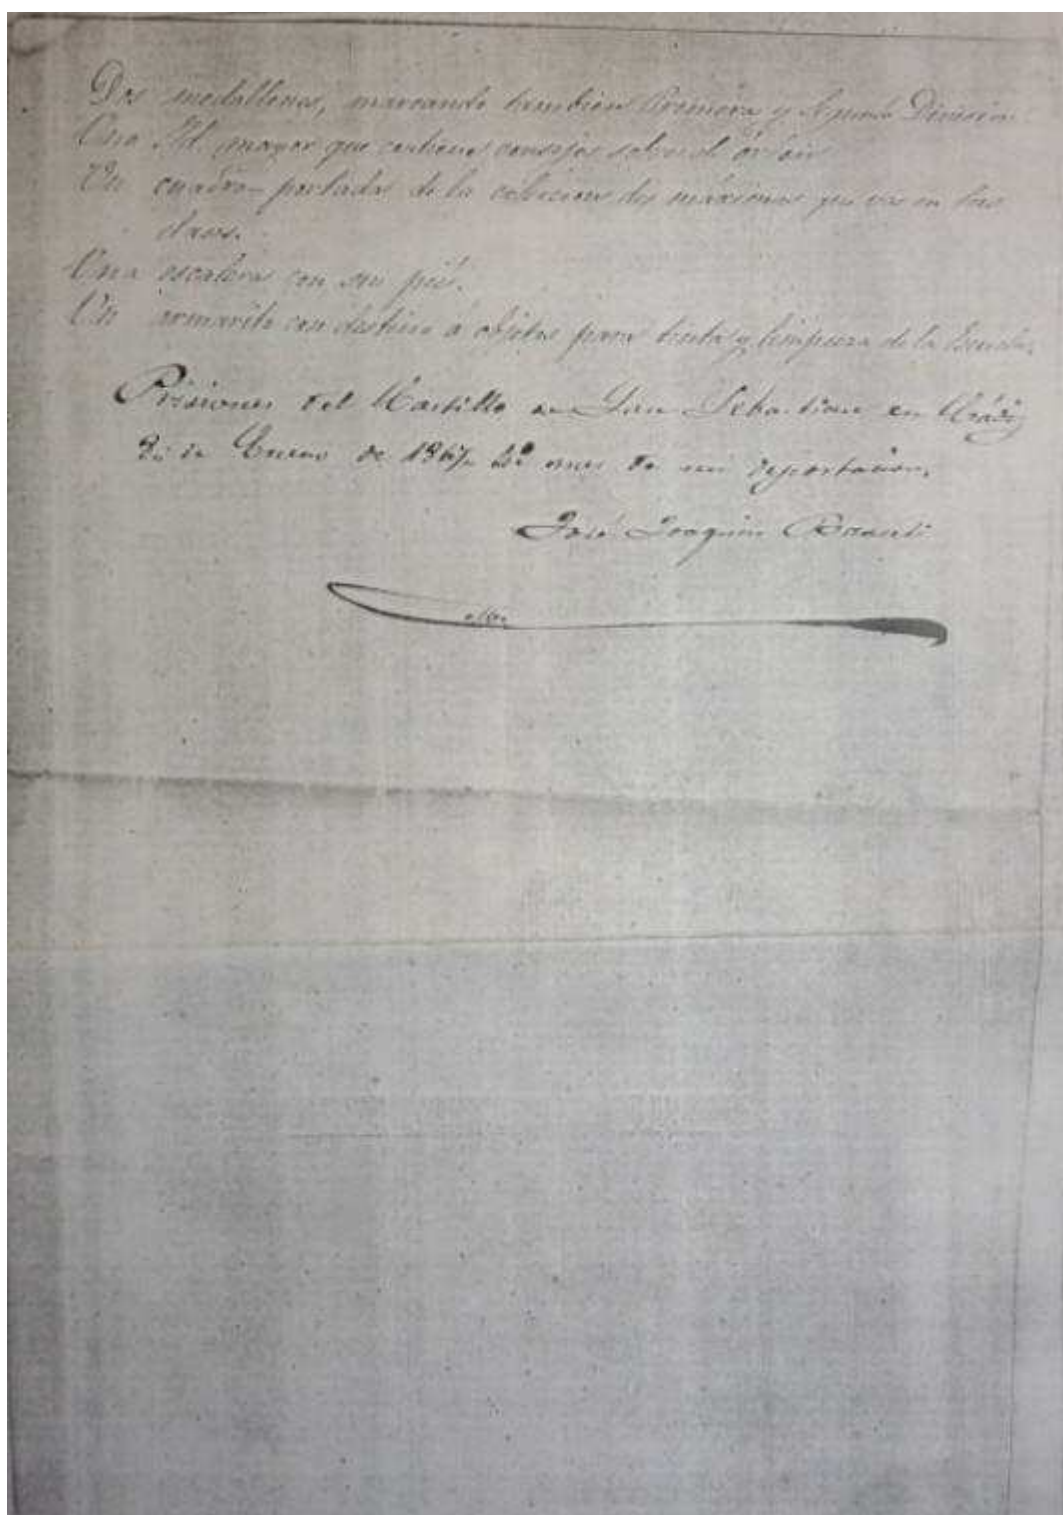 Dos medallones, marcando tambien Primera y Segunda Division
Una Id. mayor que contiene consejos sobre el
Un cuadro portada de la coleccion de máximas que van en las
Una escalera con su pié.
Un armarito con destino á objetos para tinta y limpieza de la Escuela.
Prisiones del Castillo de San Sebastian en Cádiz
de Enero de 1867, mes de mi deportacion.
José Joaquin